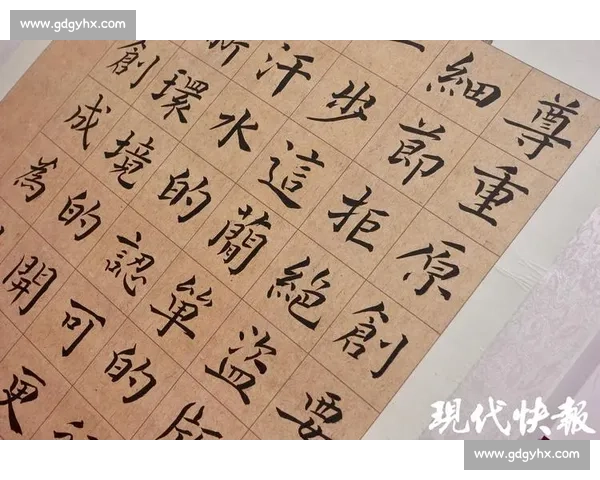 www.gdgyhx.com
尊重原創要
細節拒絕盜版
一步這簡單的
汗水的認可更
新環境的開
創成為
現代快報
www.gdgyhx.com